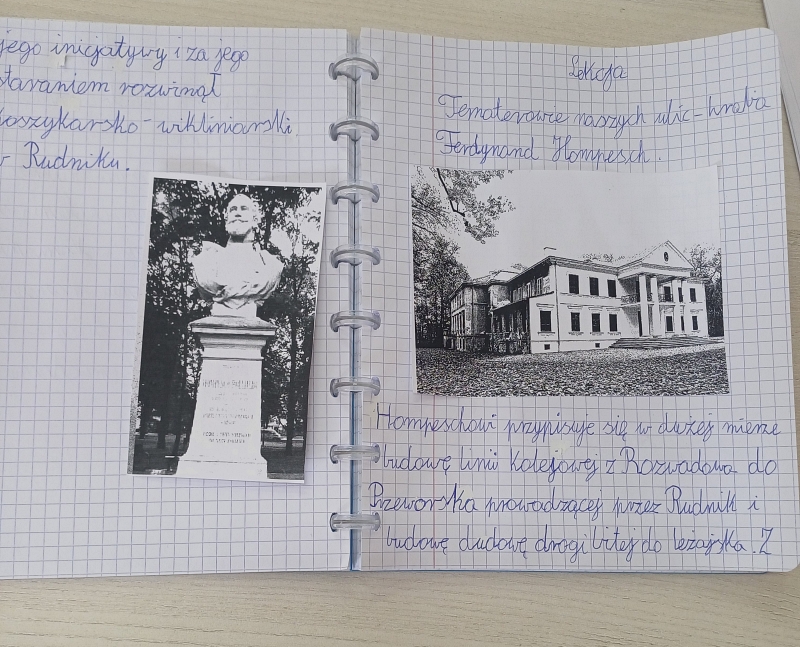 jego inicjatywy i za jego
staraniem rozwinął
koszykarsko-wikliniarski
w Rudniku.
Lekcja
Ferdynand Hompesch.
naszych ulic - hrabia
Hompeschowi przypisuje się w dużej mierze
budowę linii kolejowej z Rozwadowa do
Przeworska prowadzącej przez Rudnik i
budowę dudowę drogi bitej do Leżajska. Z